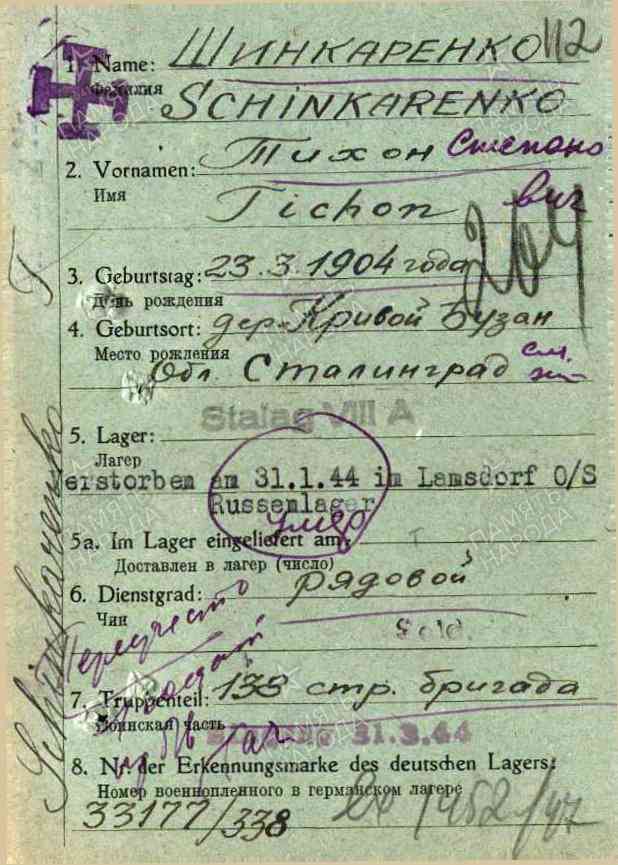 ШИНКАРЕНКО 112
1. Name:
Фамилия
SCHINKARENKO
Тихон Степано
2. Vornamen:
вич
Имя
Tichon
3. Geburtstag: 23.3.1904 года
День рождения
4. Geburtsort: дер. Кривой Бузан
Место рождения
Обл. Сталинград см.
Stalag VIII A
5. Lager:
Лагер
erstorben am 31.1.44 im Lamsdorf O/S
Russenlager
умер
5a. Im Lager eingeliefert am:
Доставлен в лагер (число)
6. Dienstgrad: рядовой
Чин
Sold.
7. Truppenteil: 138 стр. бригада
Воинская часть
31.3.44
8. Nr. der Erkennungsmarke des deutschen Lagers:
Номер военнопленного в германском лагере
33177/338
Schinkarenko T
ПАМЯТЬ НАРОДА